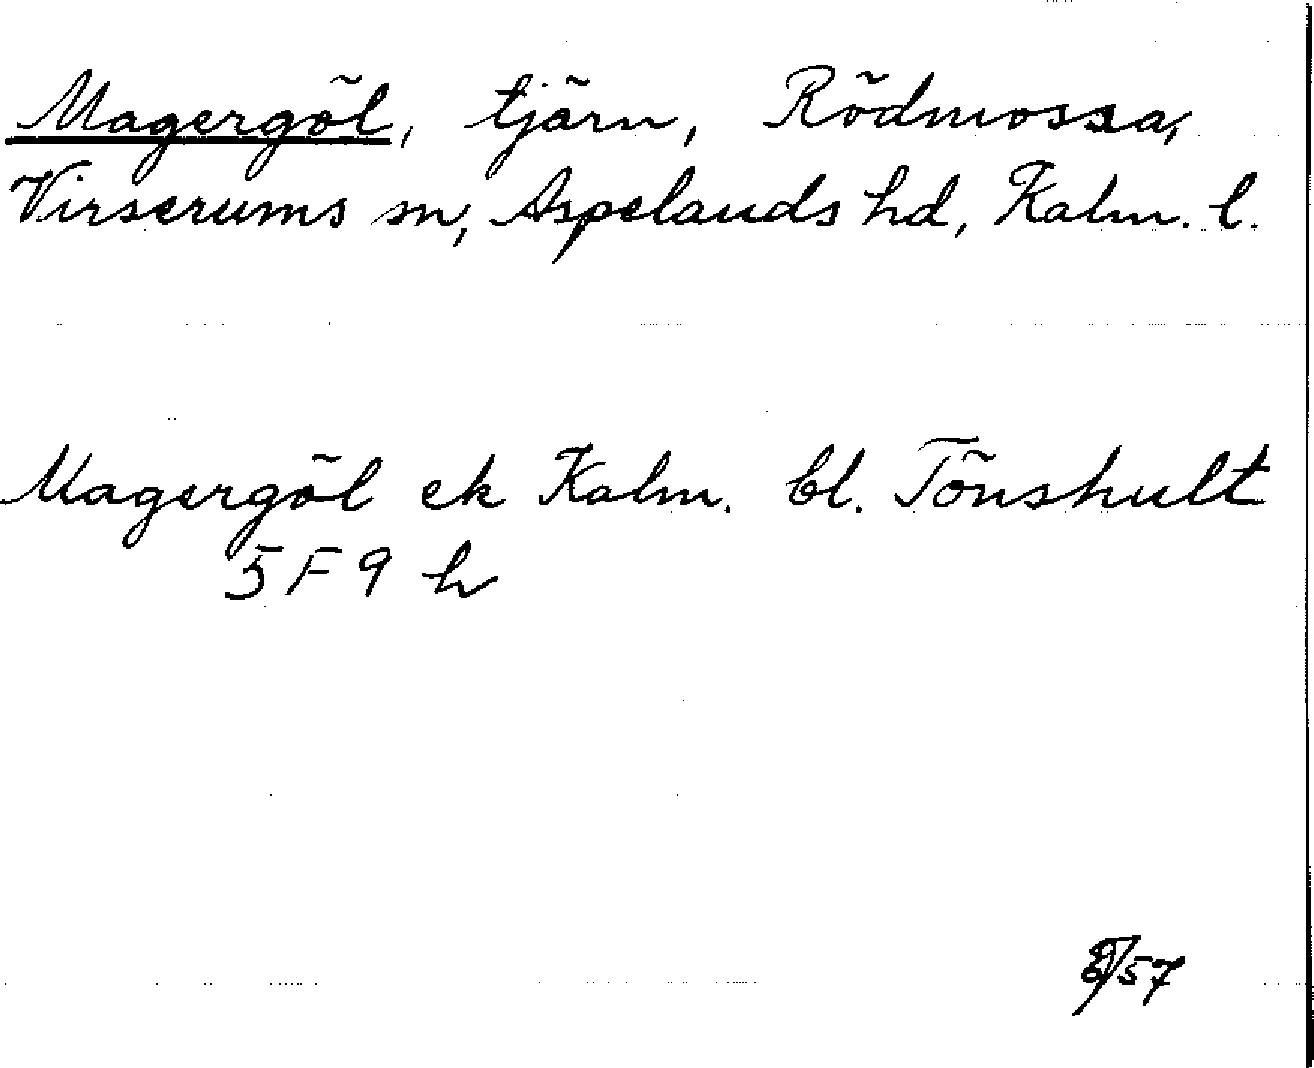 Magergöl, tjärn, Rödmossa,
Virserums sn, Aspelands hd, Kalm. l.
Magergöl ek Kalm. bl. Tönshult
5 F 9 h
/57